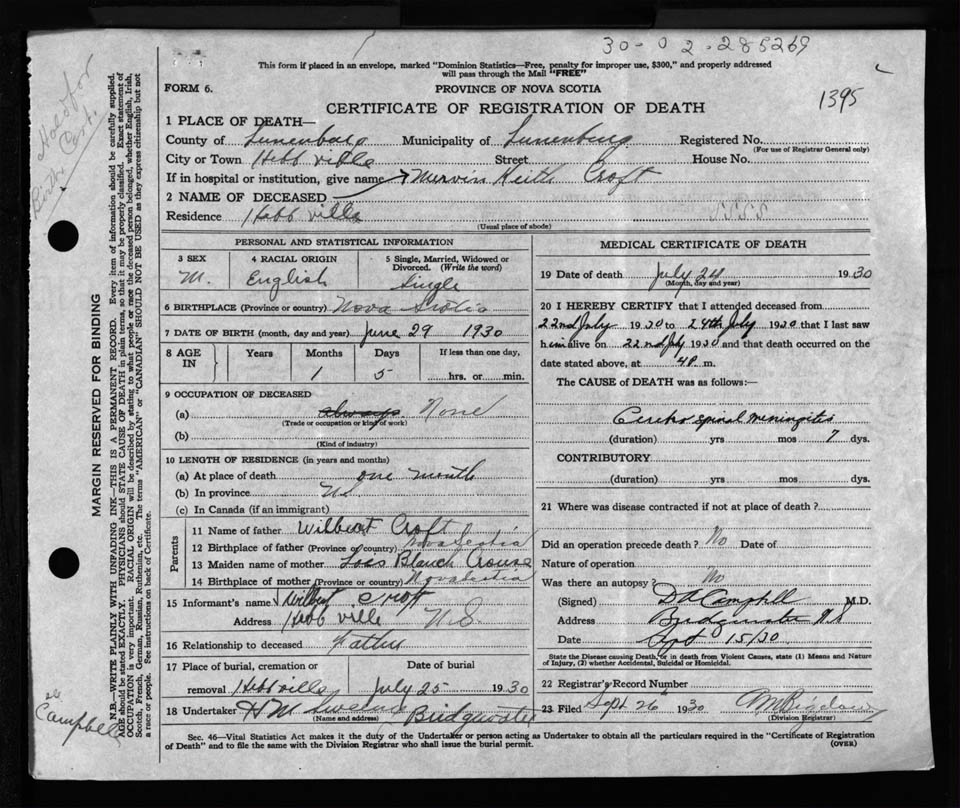 30-02-285269
This form if placed in an envelope, marked "Dominion Statistics—Free, penalty for improper use, $300," and properly addressed
will pass through the Mail "FREE"
FORM 6.
PROVINCE OF NOVA SCOTIA
1395
CERTIFICATE OF REGISTRATION OF DEATH
1 PLACE OF DEATH—
County of Lunenburg Municipality of Lunenburg Registered No.
(For use of Registrar General only)
City or Town Hebbville Street House No.
If in hospital or institution, give name Mervin Keith Croft
2 NAME OF DECEASED
Residence Hebbville
(Usual place of abode)
PERSONAL AND STATISTICAL INFORMATION
3 SEX 4 RACIAL ORIGIN 5 Single, Married, Widowed or
Divorced. (Write the word)
M. English Single
6 BIRTHPLACE (Province or country) Nova Scotia
7 DATE OF BIRTH (month, day and year) June 29 1930
8 AGE IN Years Months Days If less than one day,
1 5 hrs. or min.
9 OCCUPATION OF DECEASED
(a) None
(Trade or occupation or kind of work)
(b)
(Kind of industry)
10 LENGTH OF RESIDENCE (in years and months)
(a) At place of death one month
(b) In province
(c) In Canada (if an immigrant)
Parents
11 Name of father Wilbert Croft
12 Birthplace of father (Province or country) Nova Scotia
13 Maiden name of mother Lois Blanch Crouse
14 Birthplace of mother (Province or country) Nova Scotia
15 Informant's name Wilbert Croft
Address Hebbville N.S.
16 Relationship to deceased Father
17 Place of burial, cremation or Date of burial
removal Hebbville July 25 1930
18 Undertaker Bridgewater
(Name and address)
MEDICAL CERTIFICATE OF DEATH
19 Date of death July 24 1930
(Month, day and year)
20 I HEREBY CERTIFY that I attended deceased from
22nd July 1930 to 24th July 1930 that I last saw
him alive on 22nd July 1930 and that death occurred on the
date stated above, at 4 P. m.
The CAUSE of DEATH was as follows:—
Cerebro spinal meningitis
(duration) yrs mos 7 dys.
CONTRIBUTORY
(duration) yrs mos dys.
21 Where was disease contracted if not at place of death?
Did an operation precede death? No Date of
Nature of operation
Was there an autopsy? No
(Signed) D A Campbell M.D.
Address Bridgewater N.S.
Date Sept 15/30
State the Disease causing Death, or in death from Violent Causes, state (1) Means and Nature
of Injury, (2) whether Accidental, Suicidal or Homicidal.
22 Registrar's Record Number
23 Filed Sept 26 1930
(Division Registrar)
Sec. 46—Vital Statistics Act makes it the duty of the Undertaker or person acting as Undertaker to obtain all the particulars required in the "Certificate of Registration
of Death" and to file the same with the Division Registrar who shall issue the burial permit.
(OVER)
MARGIN RESERVED FOR BINDING
N.B.—WRITE PLAINLY WITH UNFADING INK—THIS IS A PERMANENT RECORD. Every item of information should be carefully supplied.
AGE should be stated EXACTLY. PHYSICIANS should STATE CAUSE OF DEATH in plain terms, so that it may be properly classified. Exact statement of
OCCUPATION is very important. RACIAL ORIGIN will be described by stating to what people or race the deceased person belonged, whether English, Irish,
Scotch, French, German, Russian, Ruthenian, etc. The terms "AMERICAN" or "CANADIAN" SHOULD NOT BE USED as they express citizenship but not
a race or people. See instructions on back of Certificate.
Hold for
Birth Cert.
Campbell